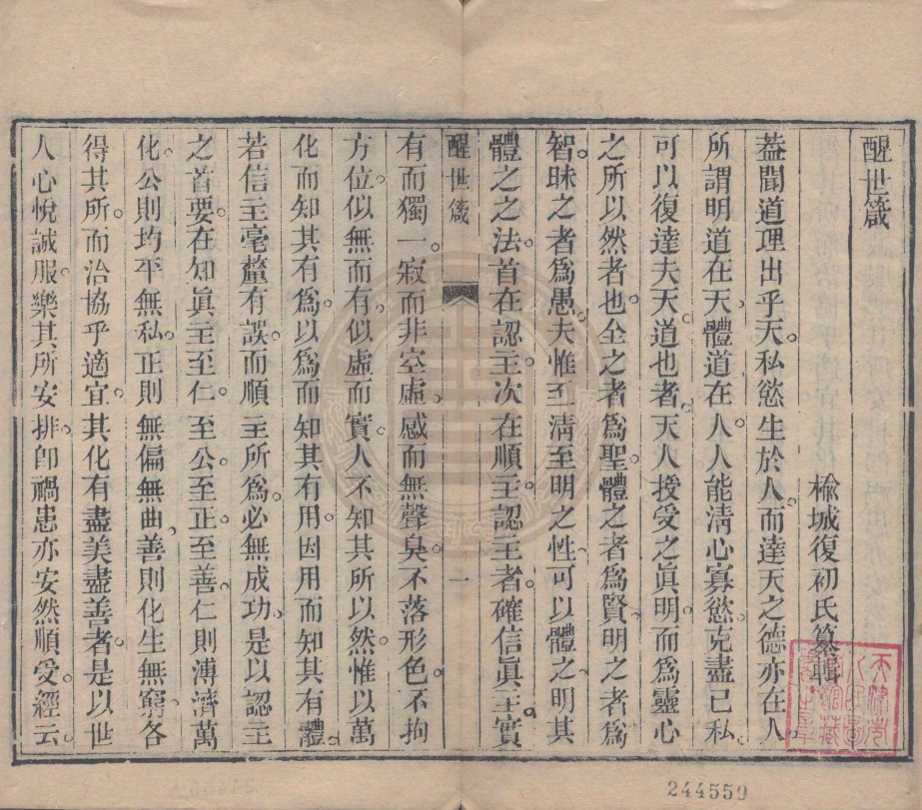 醒世箴
楡城復初氏纂輯
葢聞道理出乎天。私慾生於人。而達天之德亦在人
所謂明道在天、體道在人。人能淸心寡慾。克盡已私
可以復達夫天道也者。天人授受之眞明。而爲靈心
之所以然者也。全之者爲聖。體之者爲賢、明之者爲
智。昧之者爲愚。夫惟至淸至明之性、可以體之、明其
體之之法。首在認主。次在順主。認主者。確信眞主實
醒世箴 一
有而獨一。寂而非空虛。感而無聲臭。不落形色。不拘
方位。似無而有。似虛而實。人不知其所以然。惟以萬
化而知其有爲。以爲而知其有用。因用而知其有體。
若信主毫釐有誤。而順主所爲。必無成功、是以認主
之首要。在知眞主至仁。至公。至正。至善、仁則溥濟萬
化。公則均平無私。正則無偏無曲、善則化生無窮。各
得其所。而治協乎適宜。其化有盡美盡善者。是以世
人心悅誠服。樂其所安排。卽禍患亦安然順受。經云
244559